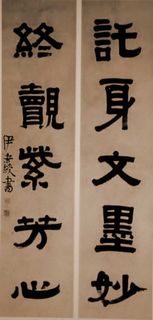 託身文墨妙
終覿紫芳心
伊秉綬書